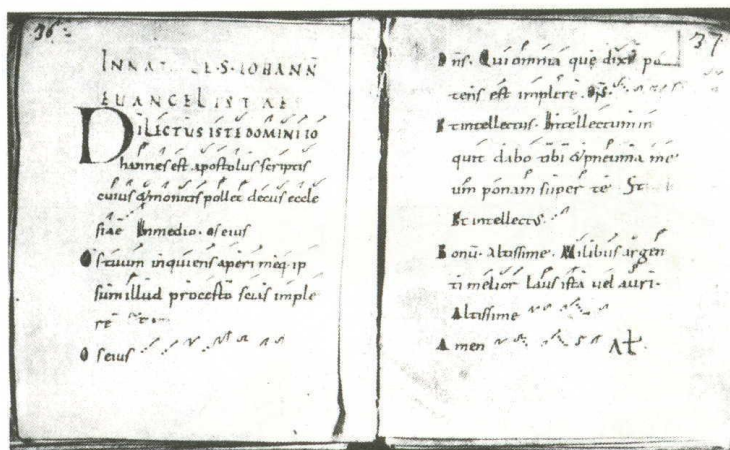 36
INNAT LE·S·IOHANÑ
EUANGELISTAE
DILECTUS ISTE DOMINI IO
hannes est apostolus scriptis
cuius & monitis pollet decus eccle
siae Inmedio· oseius
Os tuum inquiens aperi meq· ip
sum illud procesto scius imple
re
Oseius
37
Dñs· Qui omnia quę dixit po
tens est implere· Os
Et intellectus· Intellectum in
quit dabo tibi & pneuma me
um ponam super te St
Et intellectus
Bonū· Altissime· Milibus argen
ti melior laus ista uel auri·
Altissime
Amen